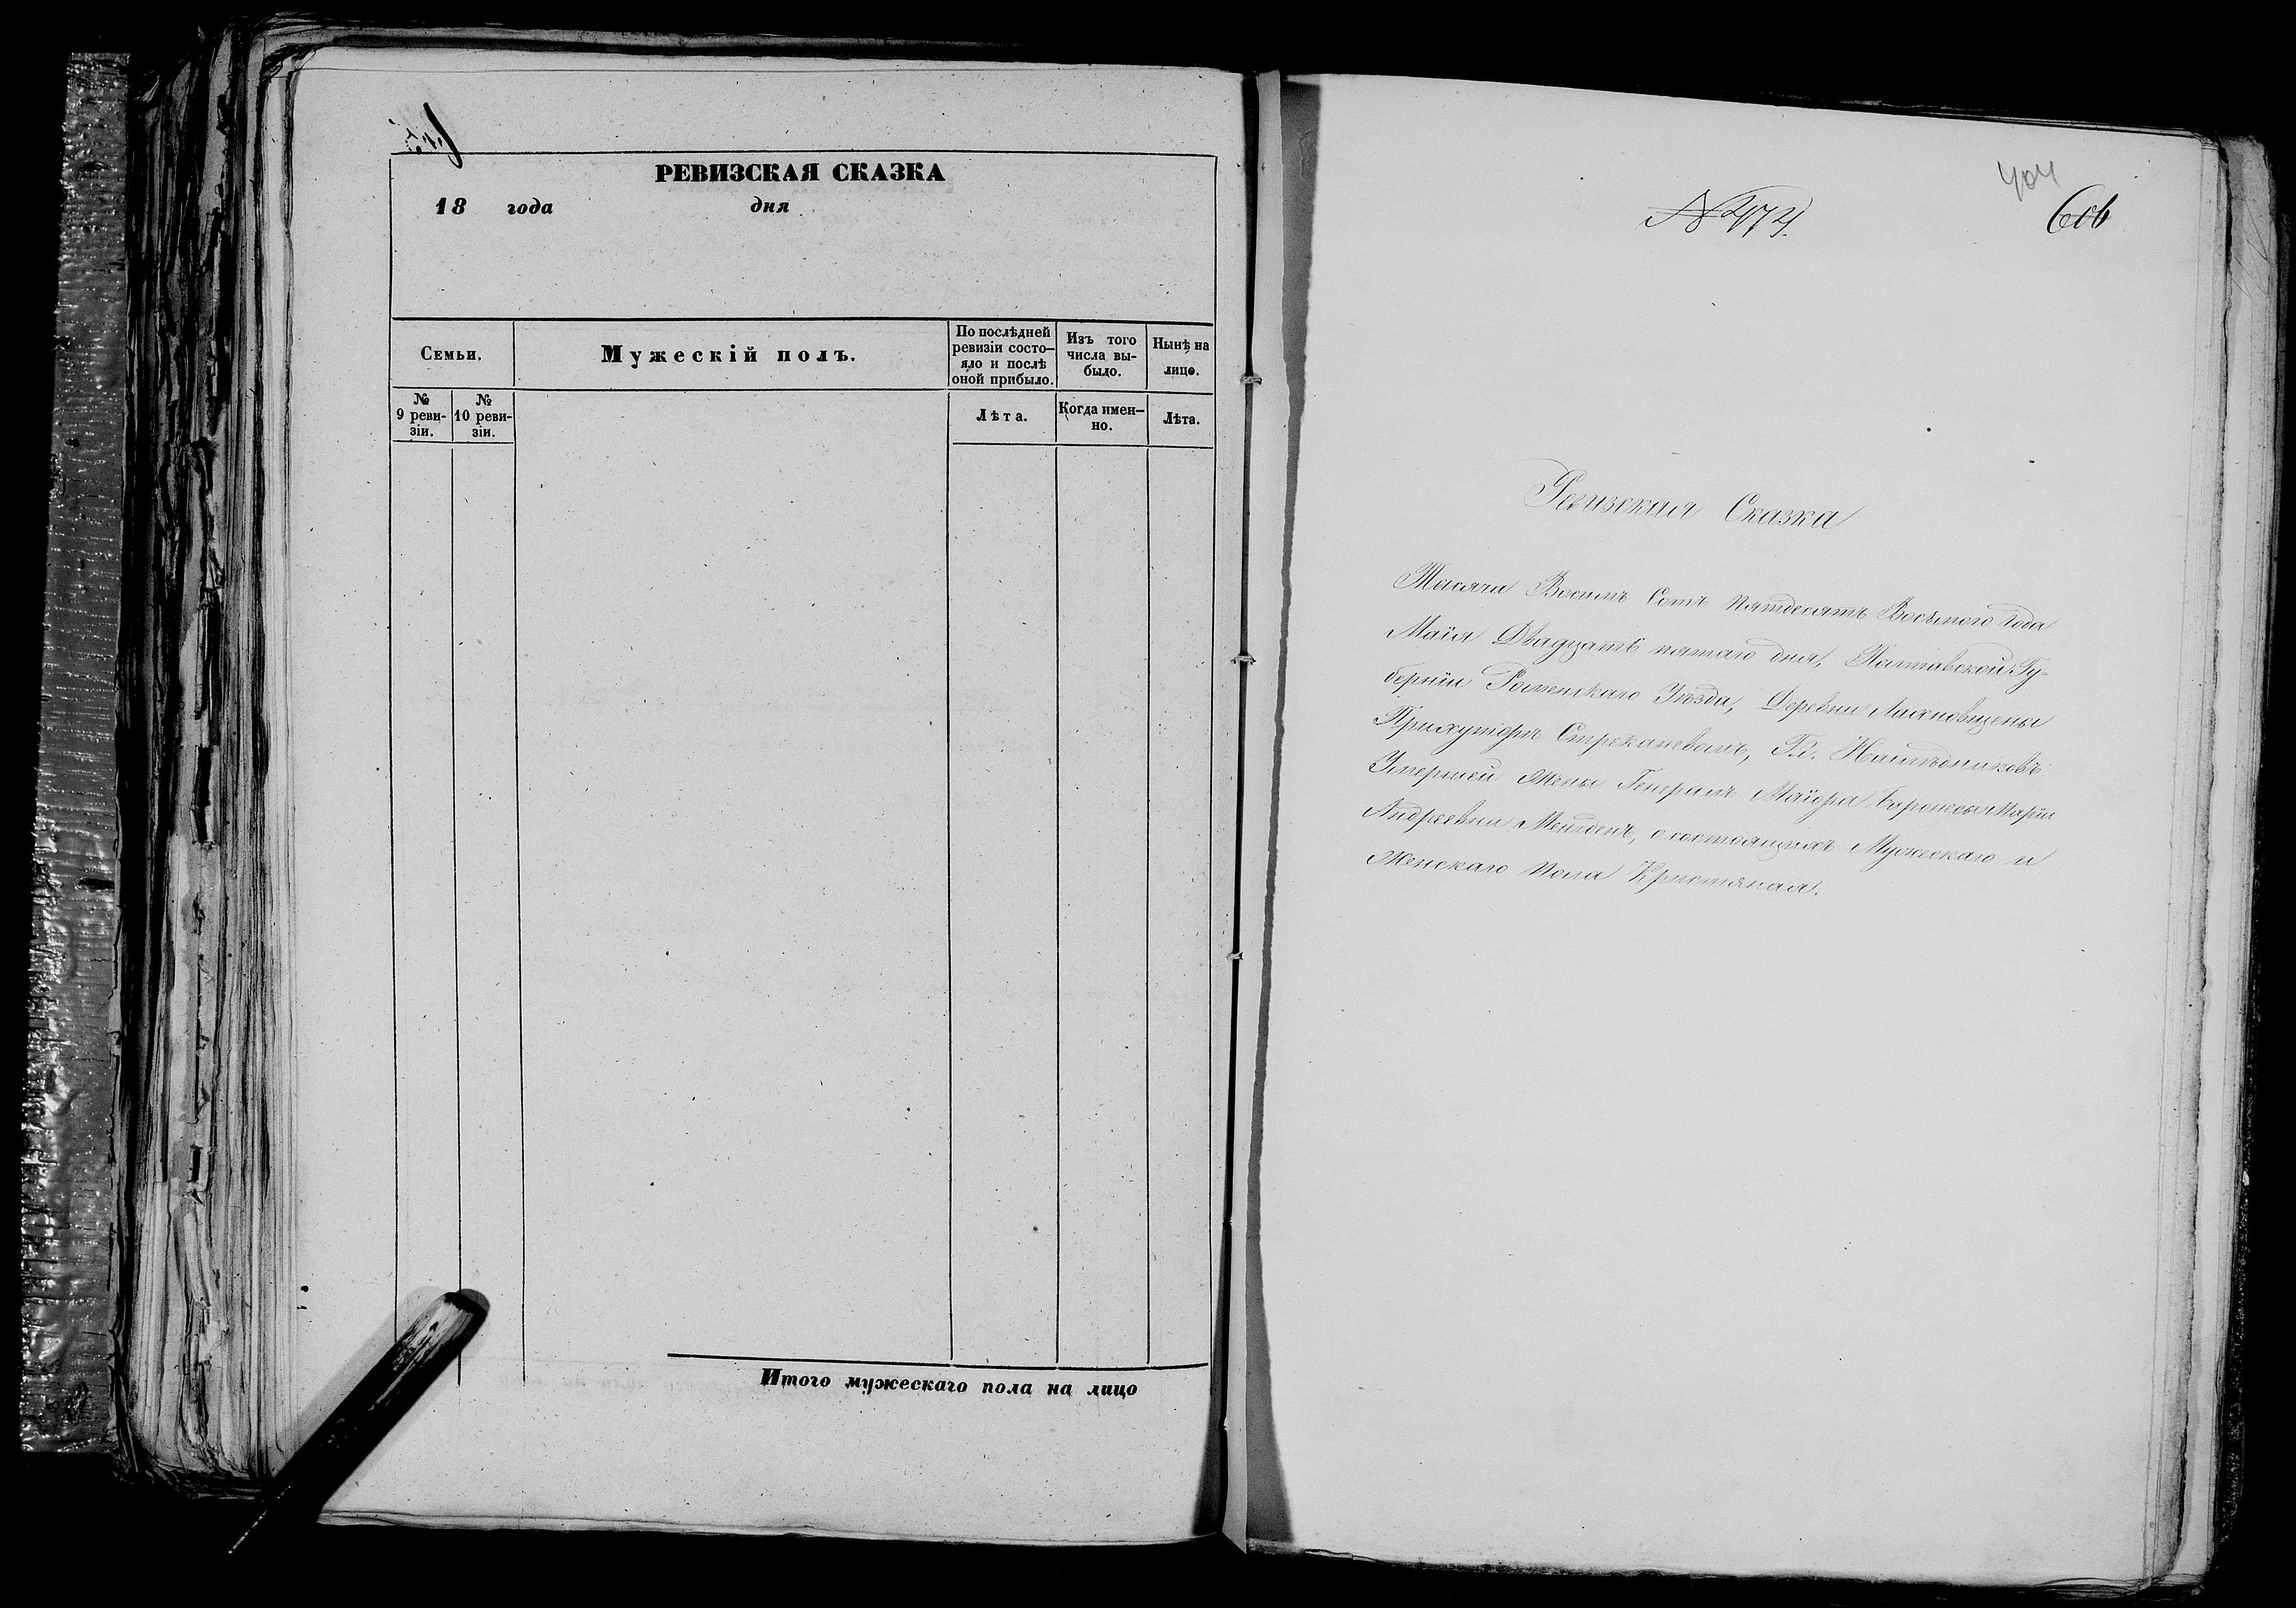 РЕВИЗСКАЯ СКАЗКА
18 года дня
Семьи.
Мужескій полъ.
По послѣдней
ревизіи состо-
яло и послѣ
оной прибыло.
Изъ того
числа вы-
было.
Нынѣ на
лице.
№
9 реви-
зіи.
№
10 реви-
зіи.
Лѣта.
Когда имен-
но.
Лѣта.
Итого мужескаго пола на лицо
404
606
Ревизская Сказка
Тысяча Восимъ Сотъ Пятдесятъ Восьмого Года
Маія Двадцать пятаго дня, Полтавской Гу-
берніи Роменскаго Уѣзда, Деревни
Прихуторѣ Г.г. Наслѣдниковъ
Умершей Жены Генералъ Маіора Баронесы Маріи
Андреевни Менгденъ, о состоящихъ Мужескаго и
Женскаго Пола